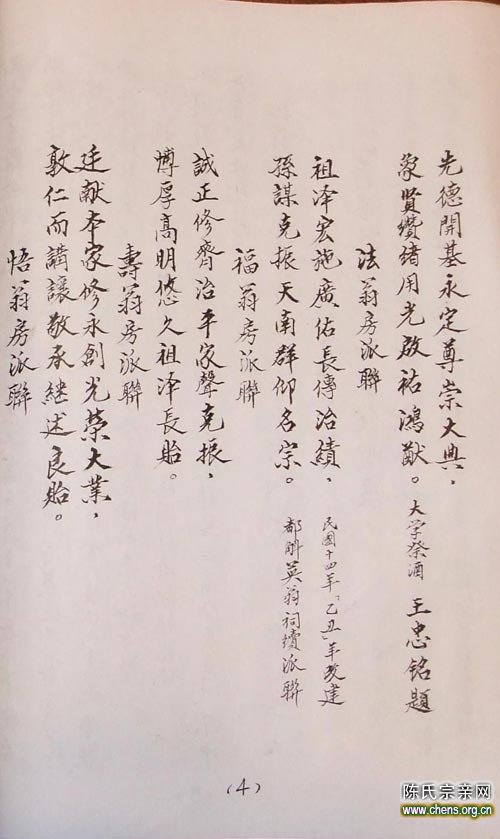 先德開基永定尊崇大典，
象賢纘緒用光啟祐鴻猷。大学祭酒 王忠銘題
法翁房派聯
祖泽宏施廣佑長傳治績，民國十四年「乙丑」年改建
孫謀克振天南群仰名宗。都斛英翁祠續派聯
福翁房派聯
誠正修齊治平家聲克振，
博厚高明悠久祖泽長貽。
壽翁房派聯
廷献本家修永創光榮大業，
敦仁而講讓敬承継述良貽。
悟翁房派聯
(4)
陈氏宗亲网
www.chens.org.cn